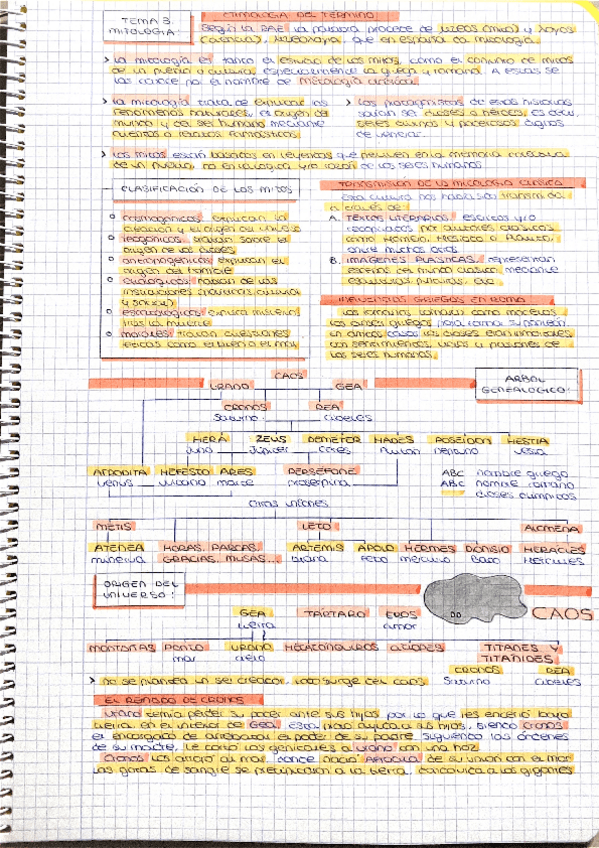 TEMA 3. MITOLOGÍA:
ETIMOLOGÍA DEL TÉRMINO
Según la RAE, la palabra procede de (mito) y λόγος
(ciencia), que en español da mitología.
> La mitología es tanto el estudio de los mitos, como el conjunto de mitos
de un pueblo o cultura, especialmente la griega y romana. A estas se
las conoce por el nombre de mitología clásica.
> La mitología trata de explicar los
fenómenos naturales, el origen del
mundo y del ser humano mediante
cuentos o relatos fantásticos.
> Los protagonistas de estas historias
solían ser dioses o héroes, es decir,
seres divinos y poderosos dignos
de venerar.
> Los mitos están basados en leyendas que perviven en la memoria colectiva
de un pueblo, no en la lógica y/o razón de los seres humanos
CLASIFICACIÓN DE LOS MITOS
o cosmogónicos: explican la
creación y el origen del universo
o teogónicos: tratan sobre el
origen de los dioses
o antropogónicos: explican el
origen del hombre
o etiológicos: hablan de las
instituciones (política, cultura
y social)
o escatológicos:
tras la muerte
o morales: tratan cuestiones
éticas como el bien o el mal
TRANSMISIÓN DE LA MITOLOGÍA CLÁSICA
Esta cultura nos ha llegado transmitida
a través de:
A. TEXTOS LITERARIOS: escritos y/o
recopilados por autores clásicos
como Homero, Hesíodo o Plauto,
entre muchos otros
B. IMÁGENES PLÁSTICAS: representan
escenas del mundo clásico mediante
esculturas, pinturas, etc.
INFLUENCIAS GRIEGAS EN ROMA
Los romanos tomaron como modelos
los dioses griegos
en ambos casos los dioses eran inmortales,
con sentimientos, vicios y pasiones de
los seres humanos.
ÁRBOL GENEALÓGICO:
CAOS
URANO GEA
CRONOS REA
Saturno Cibeles
HERA ZEUS DEMÉTER HADES POSEIDÓN HESTIA
Juno Júpiter Ceres Plutón Neptuno Vesta
AFRODITA HEFESTO ARES PERSÉFONE
Venus Vulcano Marte Proserpina
ABC nombre griego
ABC nombre romano
dioses olímpicos
Otras uniones
METIS LETO ALCMENA
ATENEA HORAS, PARCAS, ARTEMIS APOLO HERMES DIONISIO HERACLES
Minerva GRACIAS, MUSAS... Diana Febo Mercurio Baco Hércules
ORIGEN DEL UNIVERSO:
CAOS
GEA TÁRTARO EROS
tierra amor
MONTAÑAS PONTO URANO HECATONQUIROS CÍCLOPES TITANES Y TITÁNIDES
mar cielo
CRONOS REA
Saturno Cibeles
> No se plantea un ser creador, todo surge del caos
EL REINADO DE CRONOS
Urano temía perder su poder ante sus hijos por lo que les encerró bajo
tierra, en el interior de Gea. Esta pidió ayuda a sus hijos, siendo Cronos
el encargado de arrebatar el poder de su padre. Siguiendo las órdenes
de su madre, le cortó los genitales a Urano con una hoz.
Cronos los arrojó al mar, donde nació Afrodita de su unión con el mar.
Las gotas de sangre se precipitaron a la tierra, a los gigantes